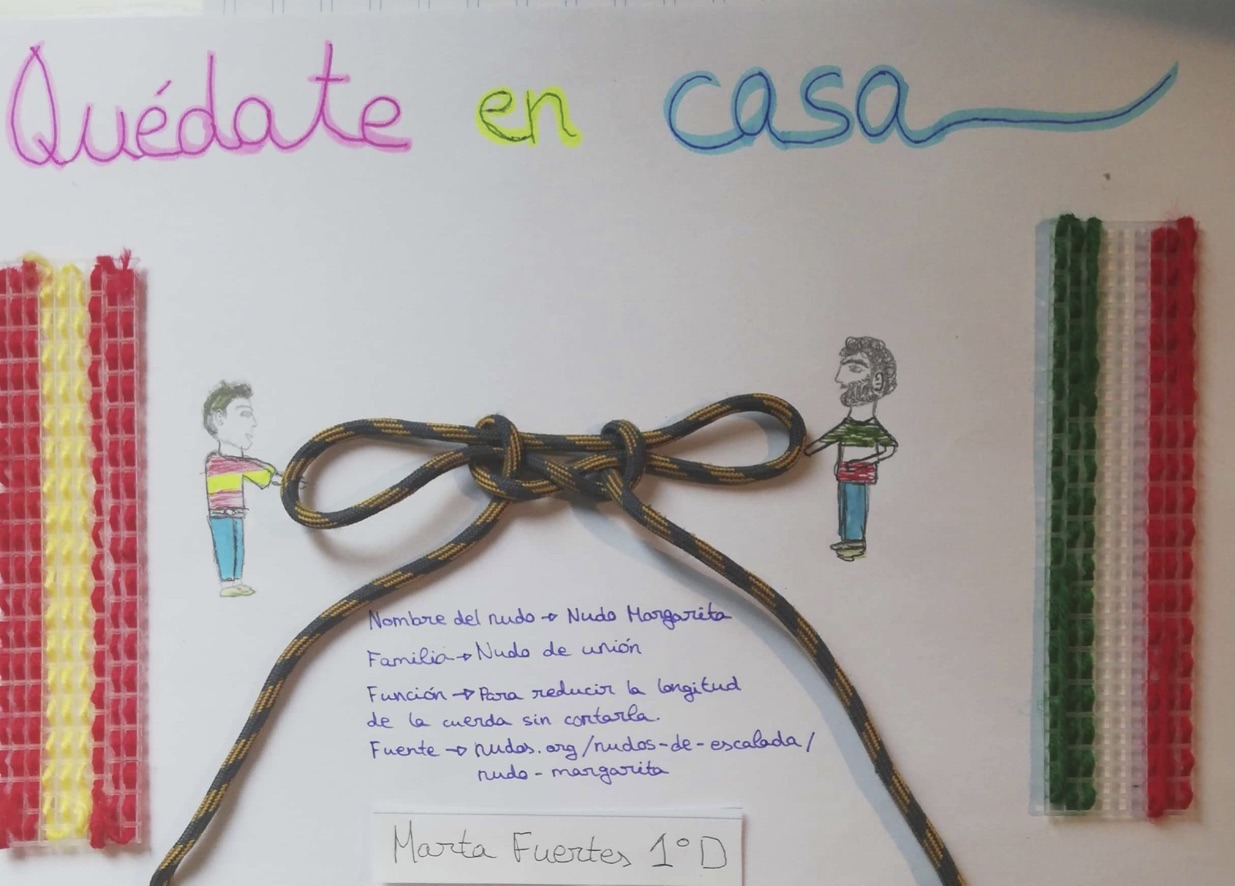 Quédate en casa
Nombre del nudo → Nudo Margarita
Familia → Nudo de unión
Función → Para reducir la longitud
de la cuerda sin cortarla.
Fuente → nudos.org/nudos-de-escalada/
nudo-margarita
Marta Fuertes 1ºD